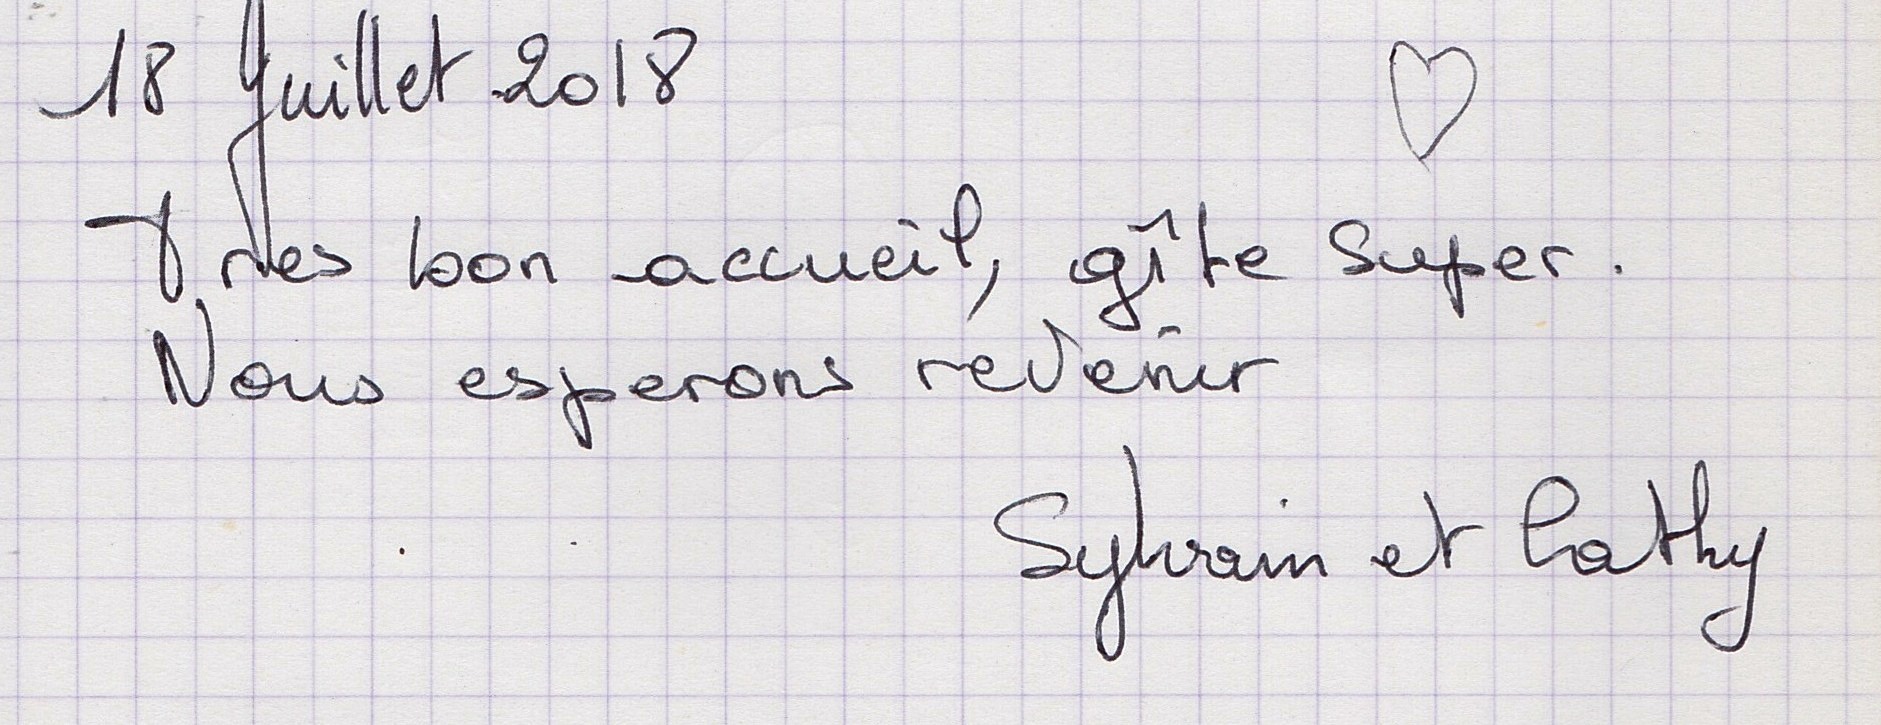 18 Juillet 2018
Tres bon accueil, gîte super.
Nous esperons revenir
Sylvain et Cathy